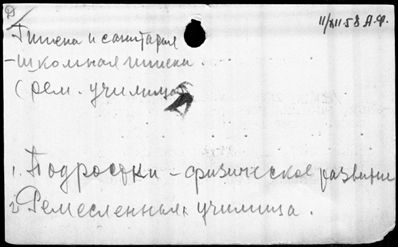 Д
11/XII 58 А.Ф.
Гигиена и санитария
- школьная гигиена.
(рем. училища)
1. Подростки - физическое развитие
2. Ремесленные училища.